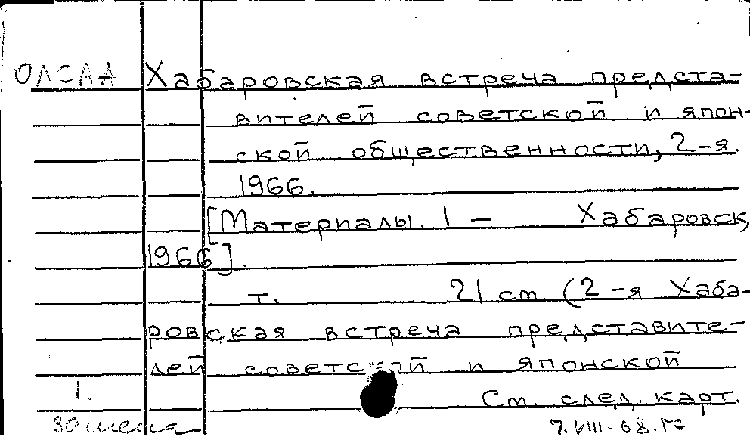 ОЛСАА Хабаровская встреча предста-
вителей советской и япон-
ской общественности, 2-я.
1966.
[Материалы. 1 – Хабаровск,
1966].
т. 21 см (2-я Хаба-
ровская встреча представите-
лей советской и японской
1.
См. след. карт.
7.VIII-68.